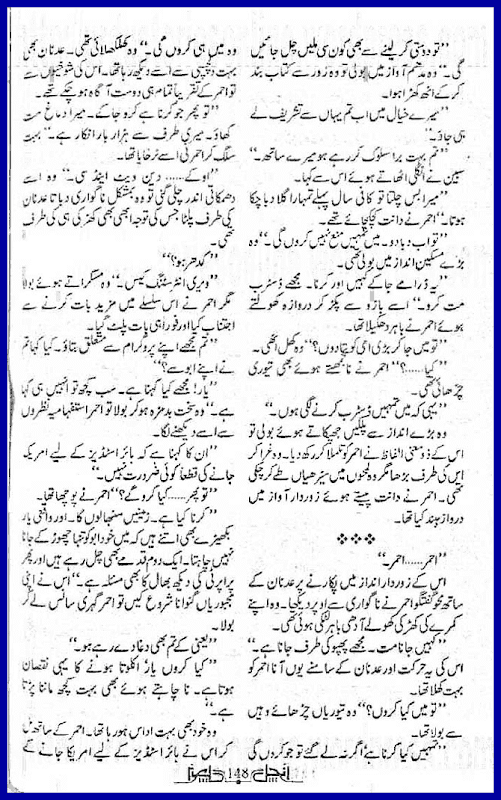 ”تو دوستی کر لینے سے بھی کون سی ملیں چل جائیں
گی۔“ وہ مدھم آواز میں بولی تو وہ زور سے کتاب بند
کر کے اٹھ کھڑا ہوا۔
”میرے خیال میں اب تم یہاں سے تشریف لے
ہی جاؤ۔“
”تم بہت برا سلوک کر رہے ہو میرے ساتھ۔“
سبین نے انگلی اٹھاتے ہوئے اس سے کہا۔
”میرا بس چلتا تو کافی سال پہلے تمہارا گلا دبا چکا
ہوتا۔“ احمر نے دانت کچکچائے تھے۔
”تو اب دبا دو۔ میں تمہیں منع نہیں کروں گی۔“ وہ
بڑے مسکین انداز میں بولی تھی۔
”یہ ڈرامے جا کے کہیں اور کرنا۔ مجھے ڈسٹرب
مت کرو۔“ اسے بازو سے پکڑ کر دروازہ کھولتے
ہوئے احمر نے باہر دھکیلا تھا۔
”تو میں جا کر بڑی امی کو بتا دوں؟“ وہ کھل اٹھی۔
”کیا……؟“ احمر نے نا سمجھتے ہوئے بھی تیوری
چڑھائی تھی۔
”یہی کہ میں تمہیں ڈسٹرب کرنے لگی ہوں۔“
وہ بڑے انداز سے پلکیں جھپکاتے ہوئے بولی تو
اس کے ذو معنی الفاظ نے احمر کو تلملا کر رکھ دیا۔ وہ غرا کر
اس کی طرف بڑھا مگر وہ لمحوں میں سیڑھیاں طے کر چکی
تھی۔ احمر نے دانت پیستے ہوئے زوردار آواز میں
دروازہ بند کیا تھا۔
❖❖❖
”احمر…… احمر۔“
اس کے زوردار انداز میں پکارنے پر عدنان کے
ساتھ محو گفتگو احمر نے ناگواری سے اوپر دیکھا۔ وہ اپنے
کمرے کی کھڑکی کھولے آدھی باہر لٹکی ہوئی تھی۔
”کہیں جانا مت۔ مجھے پھپو کی طرف جانا ہے۔“
اس کی یہ حرکت اور عدنان کے سامنے یوں آنا احمر کو
بہت کھلا تھا۔
”تو میں کیا کروں؟“ وہ تیوریاں چڑھائے وہیں
سے بولا تھا۔
”تمہیں کیا کرنا ہے؟ اگر نہ لے گئے تو جو کروں گی
وہ میں ہی کروں گی۔“ وہ کھلکھلائی تھی۔ عدنان بھی
بہت دلچسپی سے اسے دیکھ رہا تھا۔ اس کی شوخیوں سے
تو احمر کے تقریباً تمام ہی دوست آگاہ ہو چکے تھے۔
”تو پھر جو کرنا ہے کرو جا کے۔ میرا دماغ مت
کھاؤ۔ میری طرف سے ہزار بار انکار ہے۔“ بہت
سلگ کر احمر نے اسے ٹرخایا تھا۔
”اوکے…… دین ویٹ اینڈ سی۔“ وہ اسے
دھمکاتی اندر چلی گئی تو وہ بمشکل ناگواری دباتا عدنان
کی طرف پلٹا جس کی توجہ ابھی بھی کھڑکی ہی کی طرف
تھی۔
”کدھر ہو؟“
”ویری انٹرسٹنگ کیس۔“ وہ مسکراتے ہوئے بولا
مگر احمر نے اس سلسلے میں مزید بات کرنے سے
اجتناب کیا اور فوراً ہی بات پلٹ گیا۔
”تم مجھے اپنے پروگرام سے متعلق بتاؤ۔ کیا کہا تم
نے اپنے ابو سے؟“
”یار! مجھے کیا کہنا ہے۔ سب کچھ تو انہیں ہی کہنا
ہے۔“ وہ سخت بدمزہ ہو کر بولا تو احمر استفہامیہ نظروں
سے اسے دیکھنے لگا۔
”ان کا کہنا ہے کہ ہائر اسٹڈیز کے لیے امریکہ
جانے کی قطعاً کوئی ضرورت نہیں۔“
”تو پھر…… کیا کرو گے؟“ احمر نے پوچھا تھا۔
”کرنا کیا ہے۔ زمینیں سنبھالوں گا۔ اور واقعی یار
بکھیڑے بھی اتنے ہیں کہ میں خود ابو کو تنہا چھوڑ کے جانا
نہیں چاہتا۔ ایک دو مقدمے بھی چل رہے ہیں اور پھر
پراپرٹی کی دیکھ بھال کا بھی مسئلہ ہے۔“ اس نے اپنی
مجبوریاں گنوانا شروع کیں تو احمر گہری سانس لے کر
بولا۔
”یعنی کے تم بھی دغا دے رہے ہو۔“
”کیا کروں یار! اکلوتا ہونے کا یہی نقصان
ہوتا ہے۔ نا چاہتے ہوئے بھی بہت کچھ ماننا پڑتا
ہے۔“
وہ خود بھی بہت اداس ہو رہا تھا۔ احمر کے ساتھ مل
کر اس نے ہائر اسٹڈیز کے لیے امریکا جانے کے
148